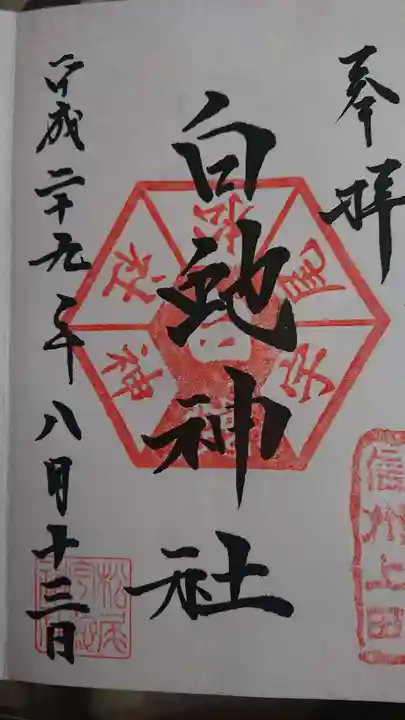 奉拝
信州上田
白虵神社
平成二十九年八月十三日